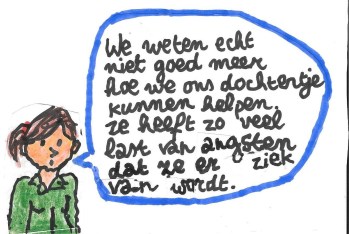 We weten echt
niet goed meer
hoe we ons dochtertje
kunnen helpen.
ze heeft zo veel
last van angsten
dat ze er ziek
van wordt.